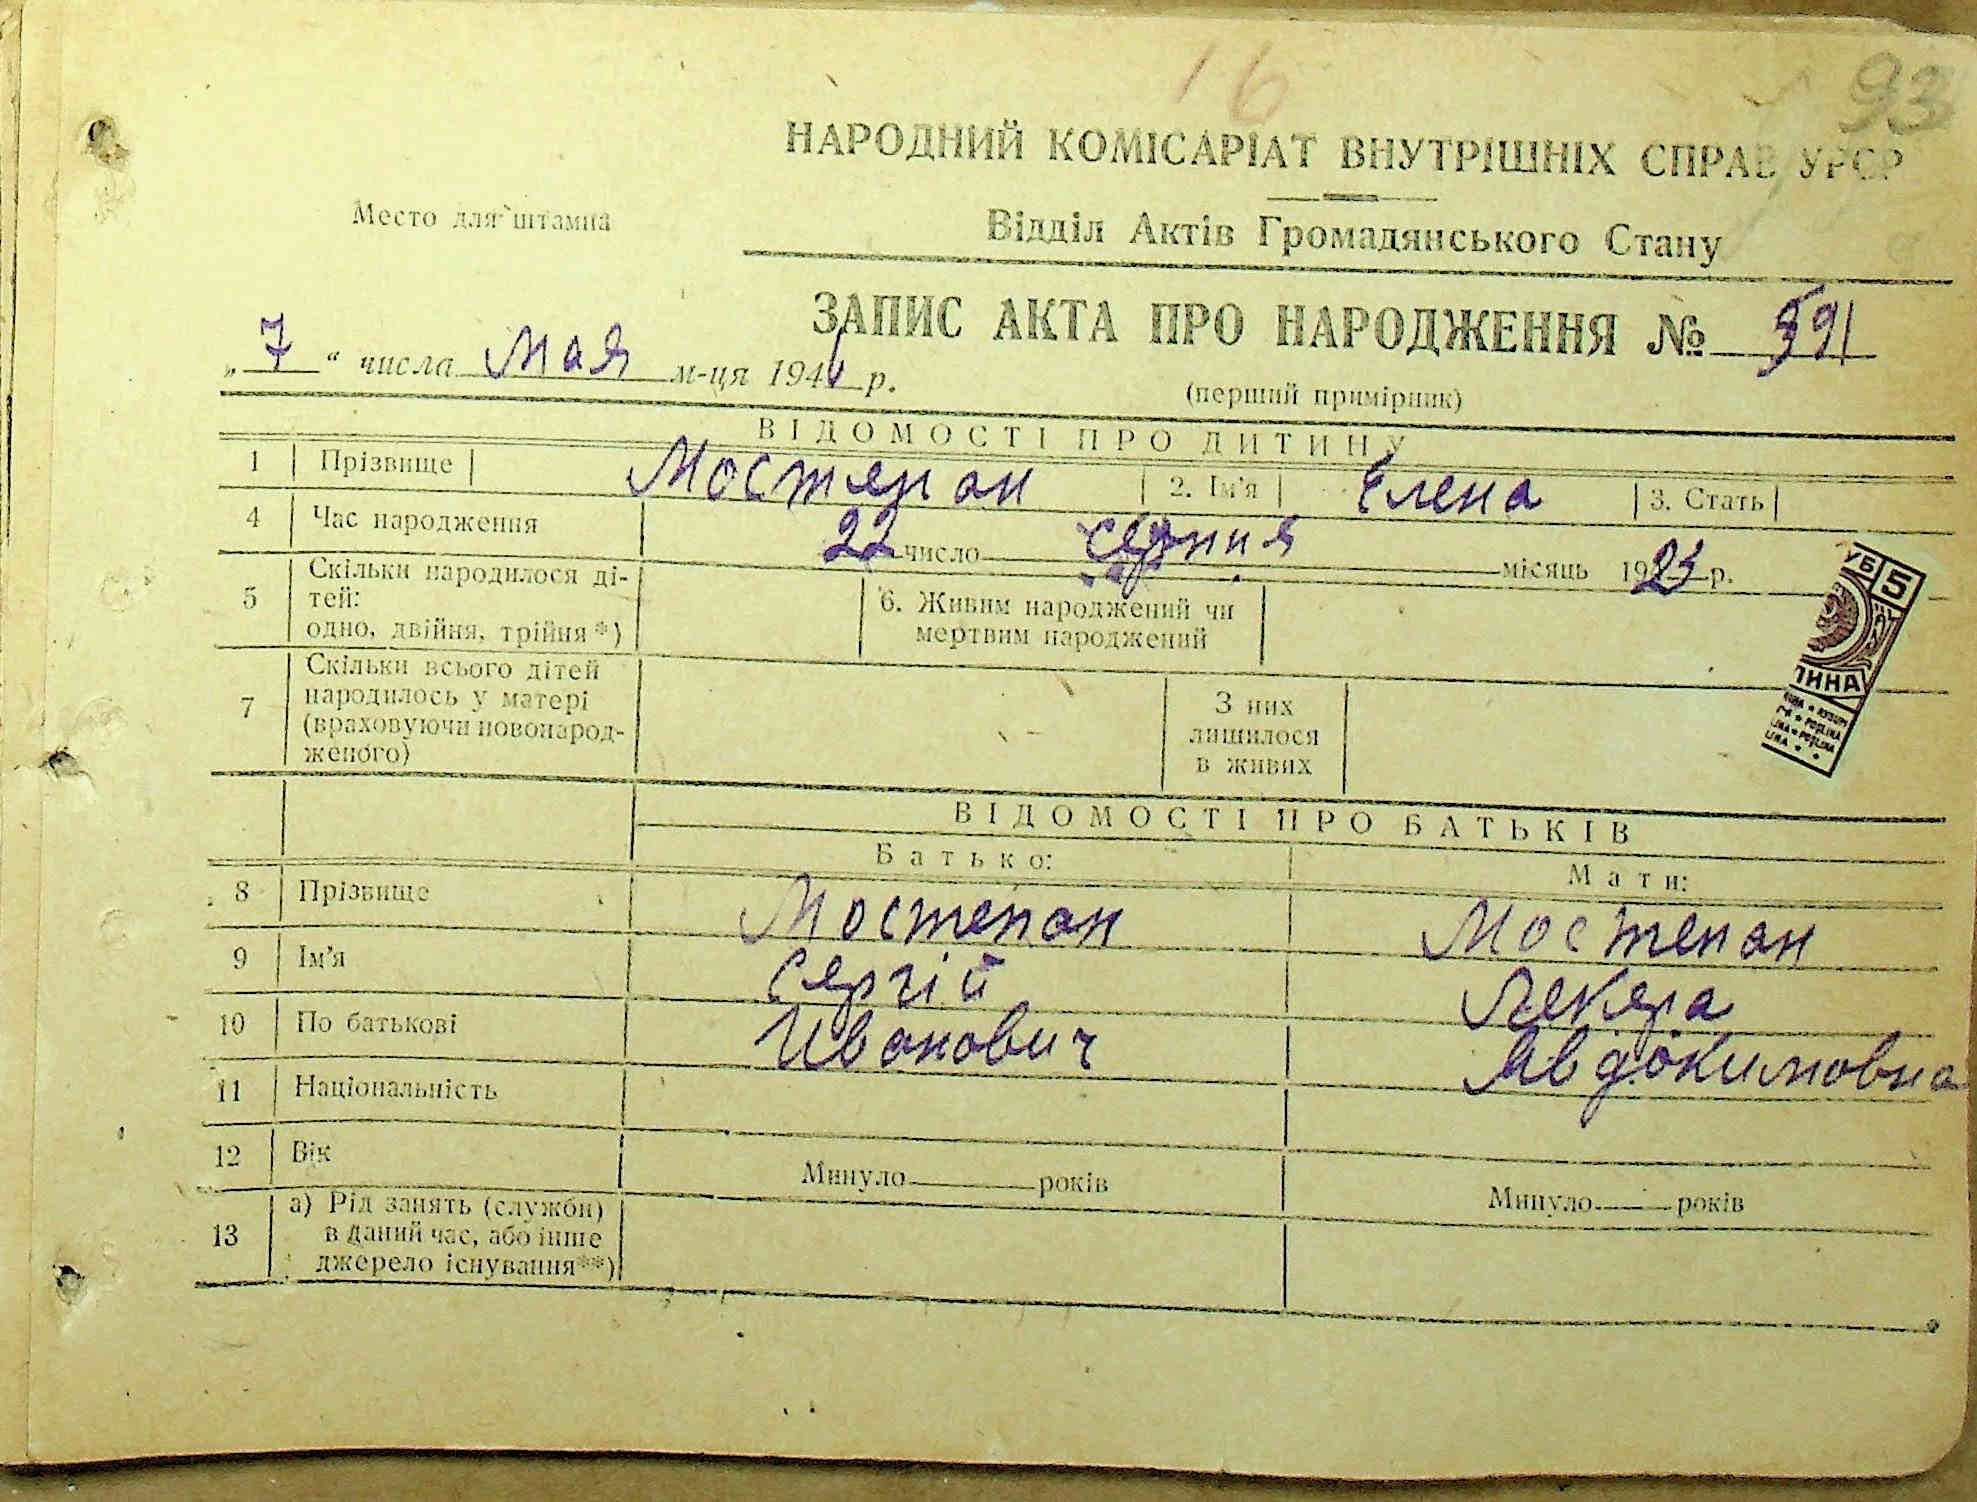 16
93
НАРОДНИЙ КОМІСАРІАТ ВНУТРІШНІХ СПРАВ УРСР
Место для штампа
Відділ Актів Громадянського Стану
ЗАПИС АКТА ПРО НАРОДЖЕННЯ № 591
„7“ числа Мая м-ця 1941 р.
(перший примірник)
ВІДОМОСТІ ПРО ДИТИНУ
1 Прізвище Мостепан 2. Ім'я Елена 3. Стать
4 Час народження 22 число серпня місяць 1923 р.
5 Скільки народилося ді-
тей:
одно, двійня, трійня*)
6. Живим народжений чи
мертвим народжений
7 Скільки всього дітей
народилось у матері
(враховуючи новонарод-
женого)
З них
лишилося
в живих
УБ 5
ВІДОМОСТІ ПРО БАТЬКІВ
Батько: Мати:
8 Прізвище Мостепан Мостепан
9 Ім'я Сергій
10 По батькові Иванович Явдокимовна
11 Національність
12 Вік Минуло років Минуло років
13 а) Рід занять (служби)
в даний час, або інше
джерело існування**)